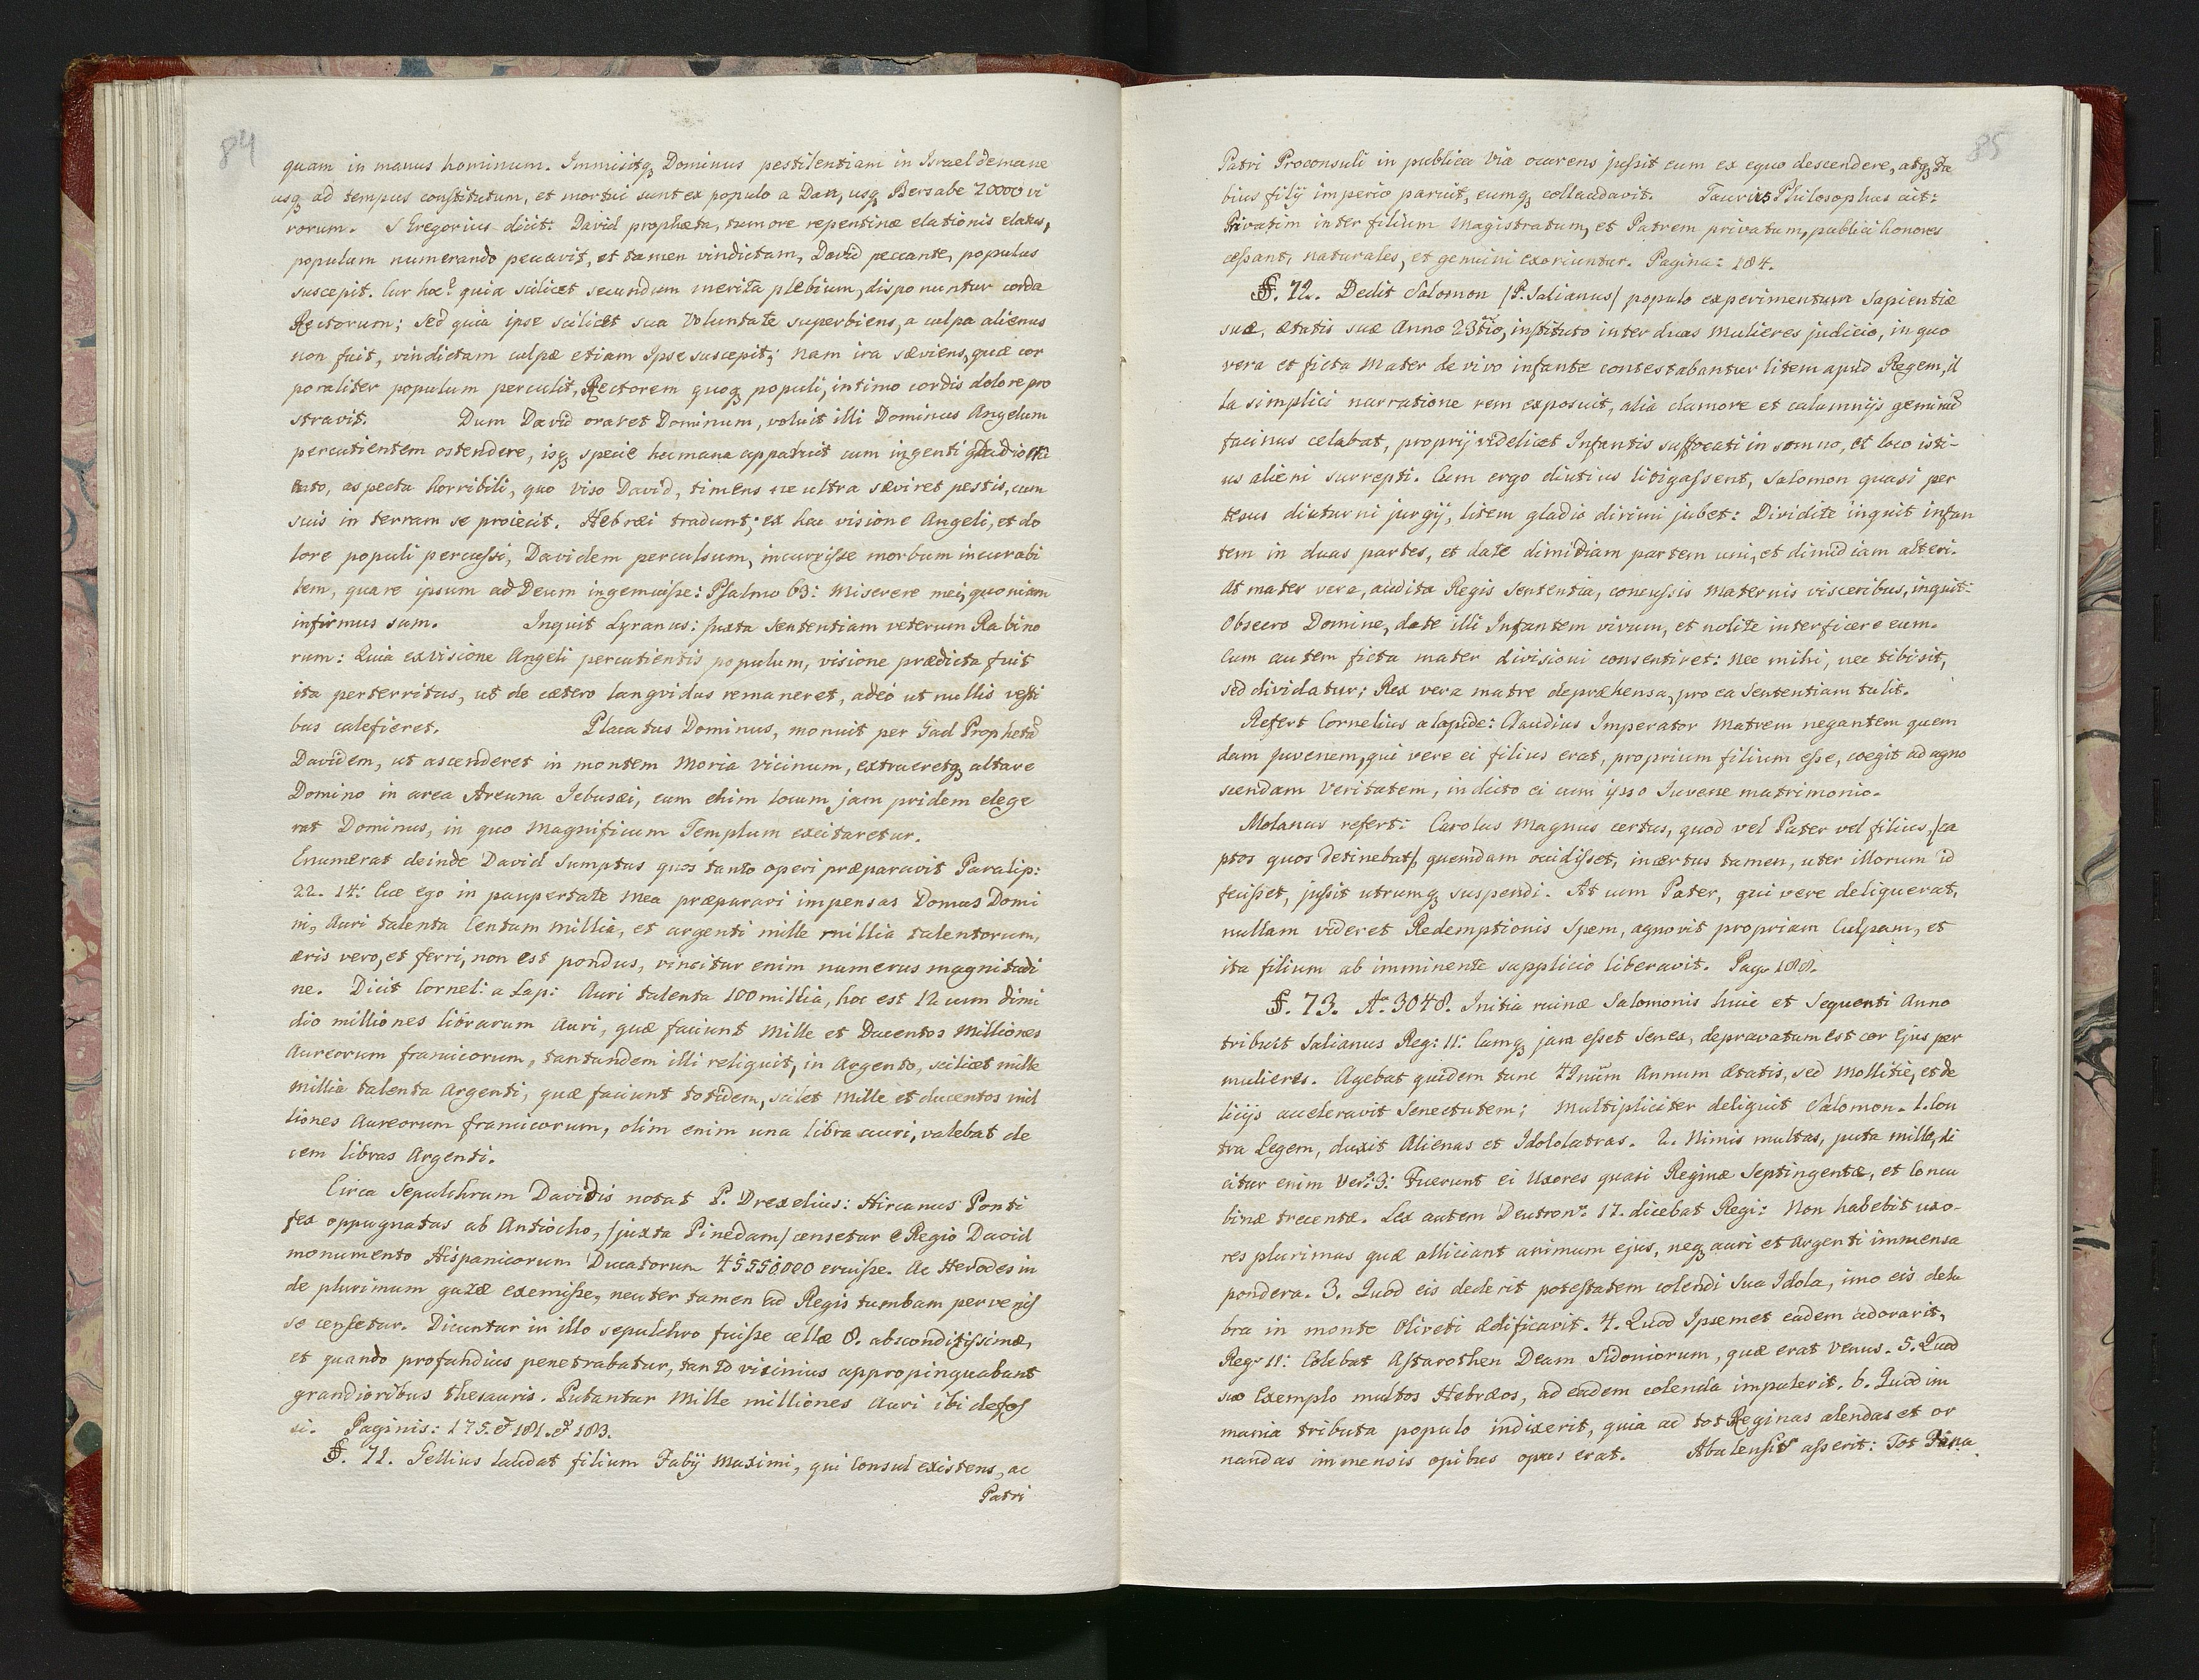 84
quam in manus hominum. Immisitq Dominus pestilentiam in Israel de mane
usq ad tempus constitutum, et mortui sunt ex populo a Dan, usq Bersabe 70000 vi
rorum. S Gregorius dicit: David prophæta, tumore repentinæ elationis elatus,
populum numerando peccavit, et tamen vindictam, David peccante, populus
suscepit. Cur hoc? quia scilicet secundum merita plebium, disponuntur corda
Rectorum; sed quia ipse scilicet sua voluntate superbiens, a culpa alienus
non fuit, vindictam culpæ etiam Ipse suscepit; nam ira sæviens, quæ cor
poraliter populum perculit, Rectorem quoq populi, intimo cordis dolore pro
stravit. Dum David oraret Dominum, voluit illi Dominus Angelum
percutientem ostendere, isq specie humana apparuit cum ingenti gladio
aspectu horribili, quo viso David, timens ne ultra sæviret pestis, cum
suis in terram se proiecit. Hebræi tradunt; ex hac visione Angeli, et do
lore populi percussi, Davidem perculsum, incurrisse morbum incurabi
lem, quare ipsum ad Deum ingemuisse: Psalmo 63: Miserere mei, quoniam
infirmus sum. Inquit Lyranus: Juxta Sententiam veterum Rabino
rum: Quia ex visione Angeli percutientis populum, visione prædicta fuit
ita perterritus, ut de cætero langvidus remaneret, adeo ut nullis vesti
bus calefieret. Placatus Dominus, monuit per Gad Prophetã
Davidem, ut ascenderet in montem Moria vicinum, extrueretq altare
Domino in area Areuna Jebusæi, eum enim locum jam pridem elege
rat Dominus, in quo Magnificum Templum excitaretur.
Enumerat deinde David Sumptus quos tanto operi præparavit Paralip:
22. 14: Ecce Ego in paupertate mea præparavi impensas Domus Domi
ni, Auri talenta Centum millia, et argenti mille millia talentorum,
æris vero, et ferri, non est pondus, vincitur enim numerus magnitudi
ne. Dicit Cornel: a Lap: Auri talenta 100 millia, hoc est 12 cum dimi
dio milliones librarum Auri, quæ faciunt Mille et Ducentos Milliones
Aureorum francicorum, tantundem illi reliquit, in Argento, scilicet mille
millia talenta Argenti, quæ faciunt totidem, scilet Mille et ducentos mil
liones Aureorum francicorum, olim enim una libra auri, valebat de
cem libras Argenti.
Circa Sepulchrum Davidis notat P. Drexelius: Hircanus Ponti
fex oppugnatus ab Antiocho, /juxta Pinedam/ censetur e Regio David
monumento Hispanicorum Ducatorum 45550,000 eruisse. Ac Herodes in
de plurimum gazæ exemisse, neuter tamen ad Regis tumbam pervenis
se censetur. Dicuntur in illo sepulchro fuisse cellæ 8. absconditissimæ,
et quando profundius penetrabatur, tanto vicinius appropinquabant
grandioribus thesauris. Putantur Mille milliones Auri ibi defos
si. Paginis: 175. & 181. & 183.
§. 71. Gellius laudat filium Fabij Maximi, qui Consul existens, ac
Patri
85
Patri Proconsuli in publica via ocurens jussit eum ex equo descendere, atq Fa
bius filij imperio paruit, eumq collaudavit. Taurus Philosophus ait:
Privatim inter filium Magistratum, et Patrem privatum, publici honores
cessant, naturales, et genuini exoriuntur. Pagina: 184.
§. 72. Dedit Salomon /P. Salianus/ populo experimentum Sapientiæ
suæ, ætatis suæ Anno 23tio, instituto inter duas Mulieres judicio, in quo
vera et ficta Mater de vivo infante contestabantur litem apud Regem, il
la simplici narratione rem exposuit, alia clamore et calumnijs geminũ
facinus celabat, proprij videlicet Infantis suffocati in somno, et loco isti-
us alieni surrepti. Cum ergo diutius litigassent, Salomon quasi per
tesus diuturni jurgij, litem gladio dirimi jubet: Dividite inquit infan
tem in duas partes, et date dimidiam partem uni, et dimidiam alteri.
At mater vera, audita Regis Sententia, concussis Maternis visceribus, inquit:
Obsecro Domine, date illi Infantem vivum, et nolite interficere eum.
Cum autem ficta mater divisioni consentiret: Nec mihi, nec tibi sit,
sed dividatur; Rex vera matre depræhensa, pro ea Sententiam tulit.
Refert Cornelius a lapide: Claudius Imperator Matrem negantem quem
dam Juvenem, qui vere ei filius erat, proprium filium esse, coegit ad agno
scendam Veritatem, indicto ei cum ipso Juvene matrimonio.
Molanus refert: Carolus Magnus certus, quod vel Pater vel filius, /ca
ptos quos detinebat/, quemdam occidisset, incertus tamen, uter illorum id
fecisset, jussit utrumq suspendi. At cum Pater, qui vere deliquerat,
nullam videret Redemptionis Spem, agnovit propriam Culpam, et
ita filium ab imminente supplicio liberavit. Pag. 188.
§. 73. Ao. 3048. Initia ruinæ Salomonis huic et Sequenti Anno
tribuit Salianus Reg: 11: Cumq jam esset Senex, depravatum est cor Ejus per
mulieres. Agebat quidem tunc 49num Annum ætatis, sed Mollitie, et de
licijs acceleravit Senectutem; Multipliciter deliquit Salomon. 1. Con
tra Legem, duxit Alienas et Idololatras. 2. Nimis multas, puta mille, di
citur enim Ver: 3: Fuerunt ei Uxores quasi Reginæ Septingentæ, et Concu
binæ trecentæ. Lex autem Deutron: 17. dicebat Regi: Non habebit uxo-
res plurimas quæ alliciant animum ejus, neq auri et Argenti immensa
pondera. 3. Quod eis dederit potestatem colendi Sua Idola, imo eis delu
bra in monte Oliveti Ædificavit. 4. Quod Ipsemet eadem adorarit,
Reg: 11: Colebat Astarothen Deam Sidoniorum, quæ erat Venus. 5. Quod
suo Exemplo multos Hebræos, ad eadem colenda impulerit. 6. Quod im
mania tributa populo indixerit, quia ad tot Reginas alendas et or
nandas immensis opibus opus erat. Abulensis asserit: Tot